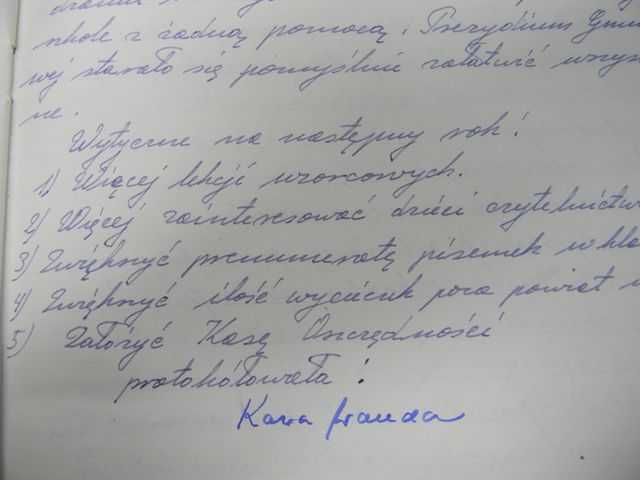 szkole z żadną pomocą i Prezydium Gmin
wej starało się pomyślnie załatwić wszys
ne.
Wytyczne na następny rok:
1) Więcej lekcji wzorcowych.
2) Więcej zainteresować dzieci czytelnictw
3) Zwiększyć prenumeratę pisemek w kla
4) Zwiększyć ilość wycieczek poza powiat
5) Założyć Kasę Oszczędności
protokółowała: